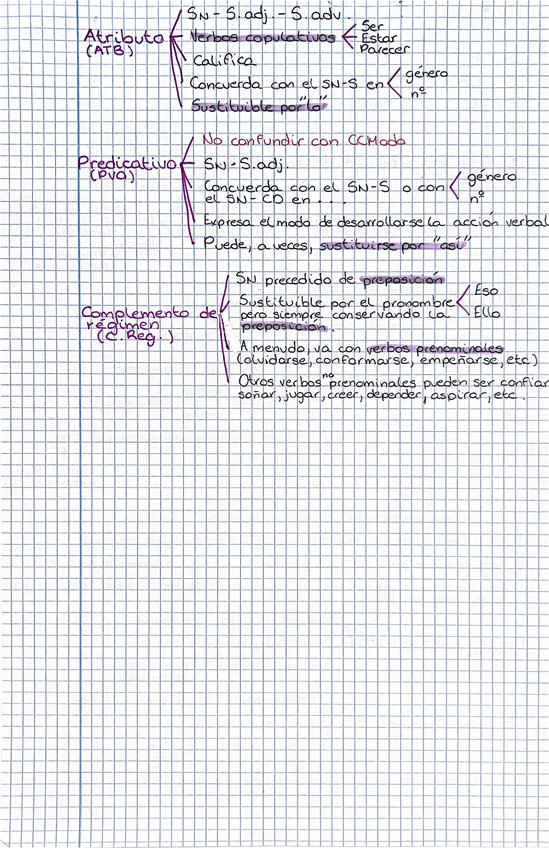 SN - S.adj. - S.adv.
Atributo
(ATB)
Verbos copulativos
Ser
Estar
Parecer
Califica
Concuerda con el SN-S en
género
nº
Sustituible por "lo"
No confundir con CCModo
Predicativo
(PVO)
SN - S.adj.
Concuerda con el SN-S o con
el SN-CD en ...
género
nº
Expresa el modo de desarrollarse la acción verbal
Puede, a veces, sustituirse por "así"
Complemento de
régimen
(C. Reg.)
SN precedido de preposición
Sustituible por el pronombre
pero siempre conservando la
preposición.
Eso
Ello
A menudo, va con verbos prenominales
(olvidarse, conformarse, empeñarse, etc)
Otros verbos no prenominales pueden ser confiar
soñar, jugar, creer, depender, aspirar, etc.